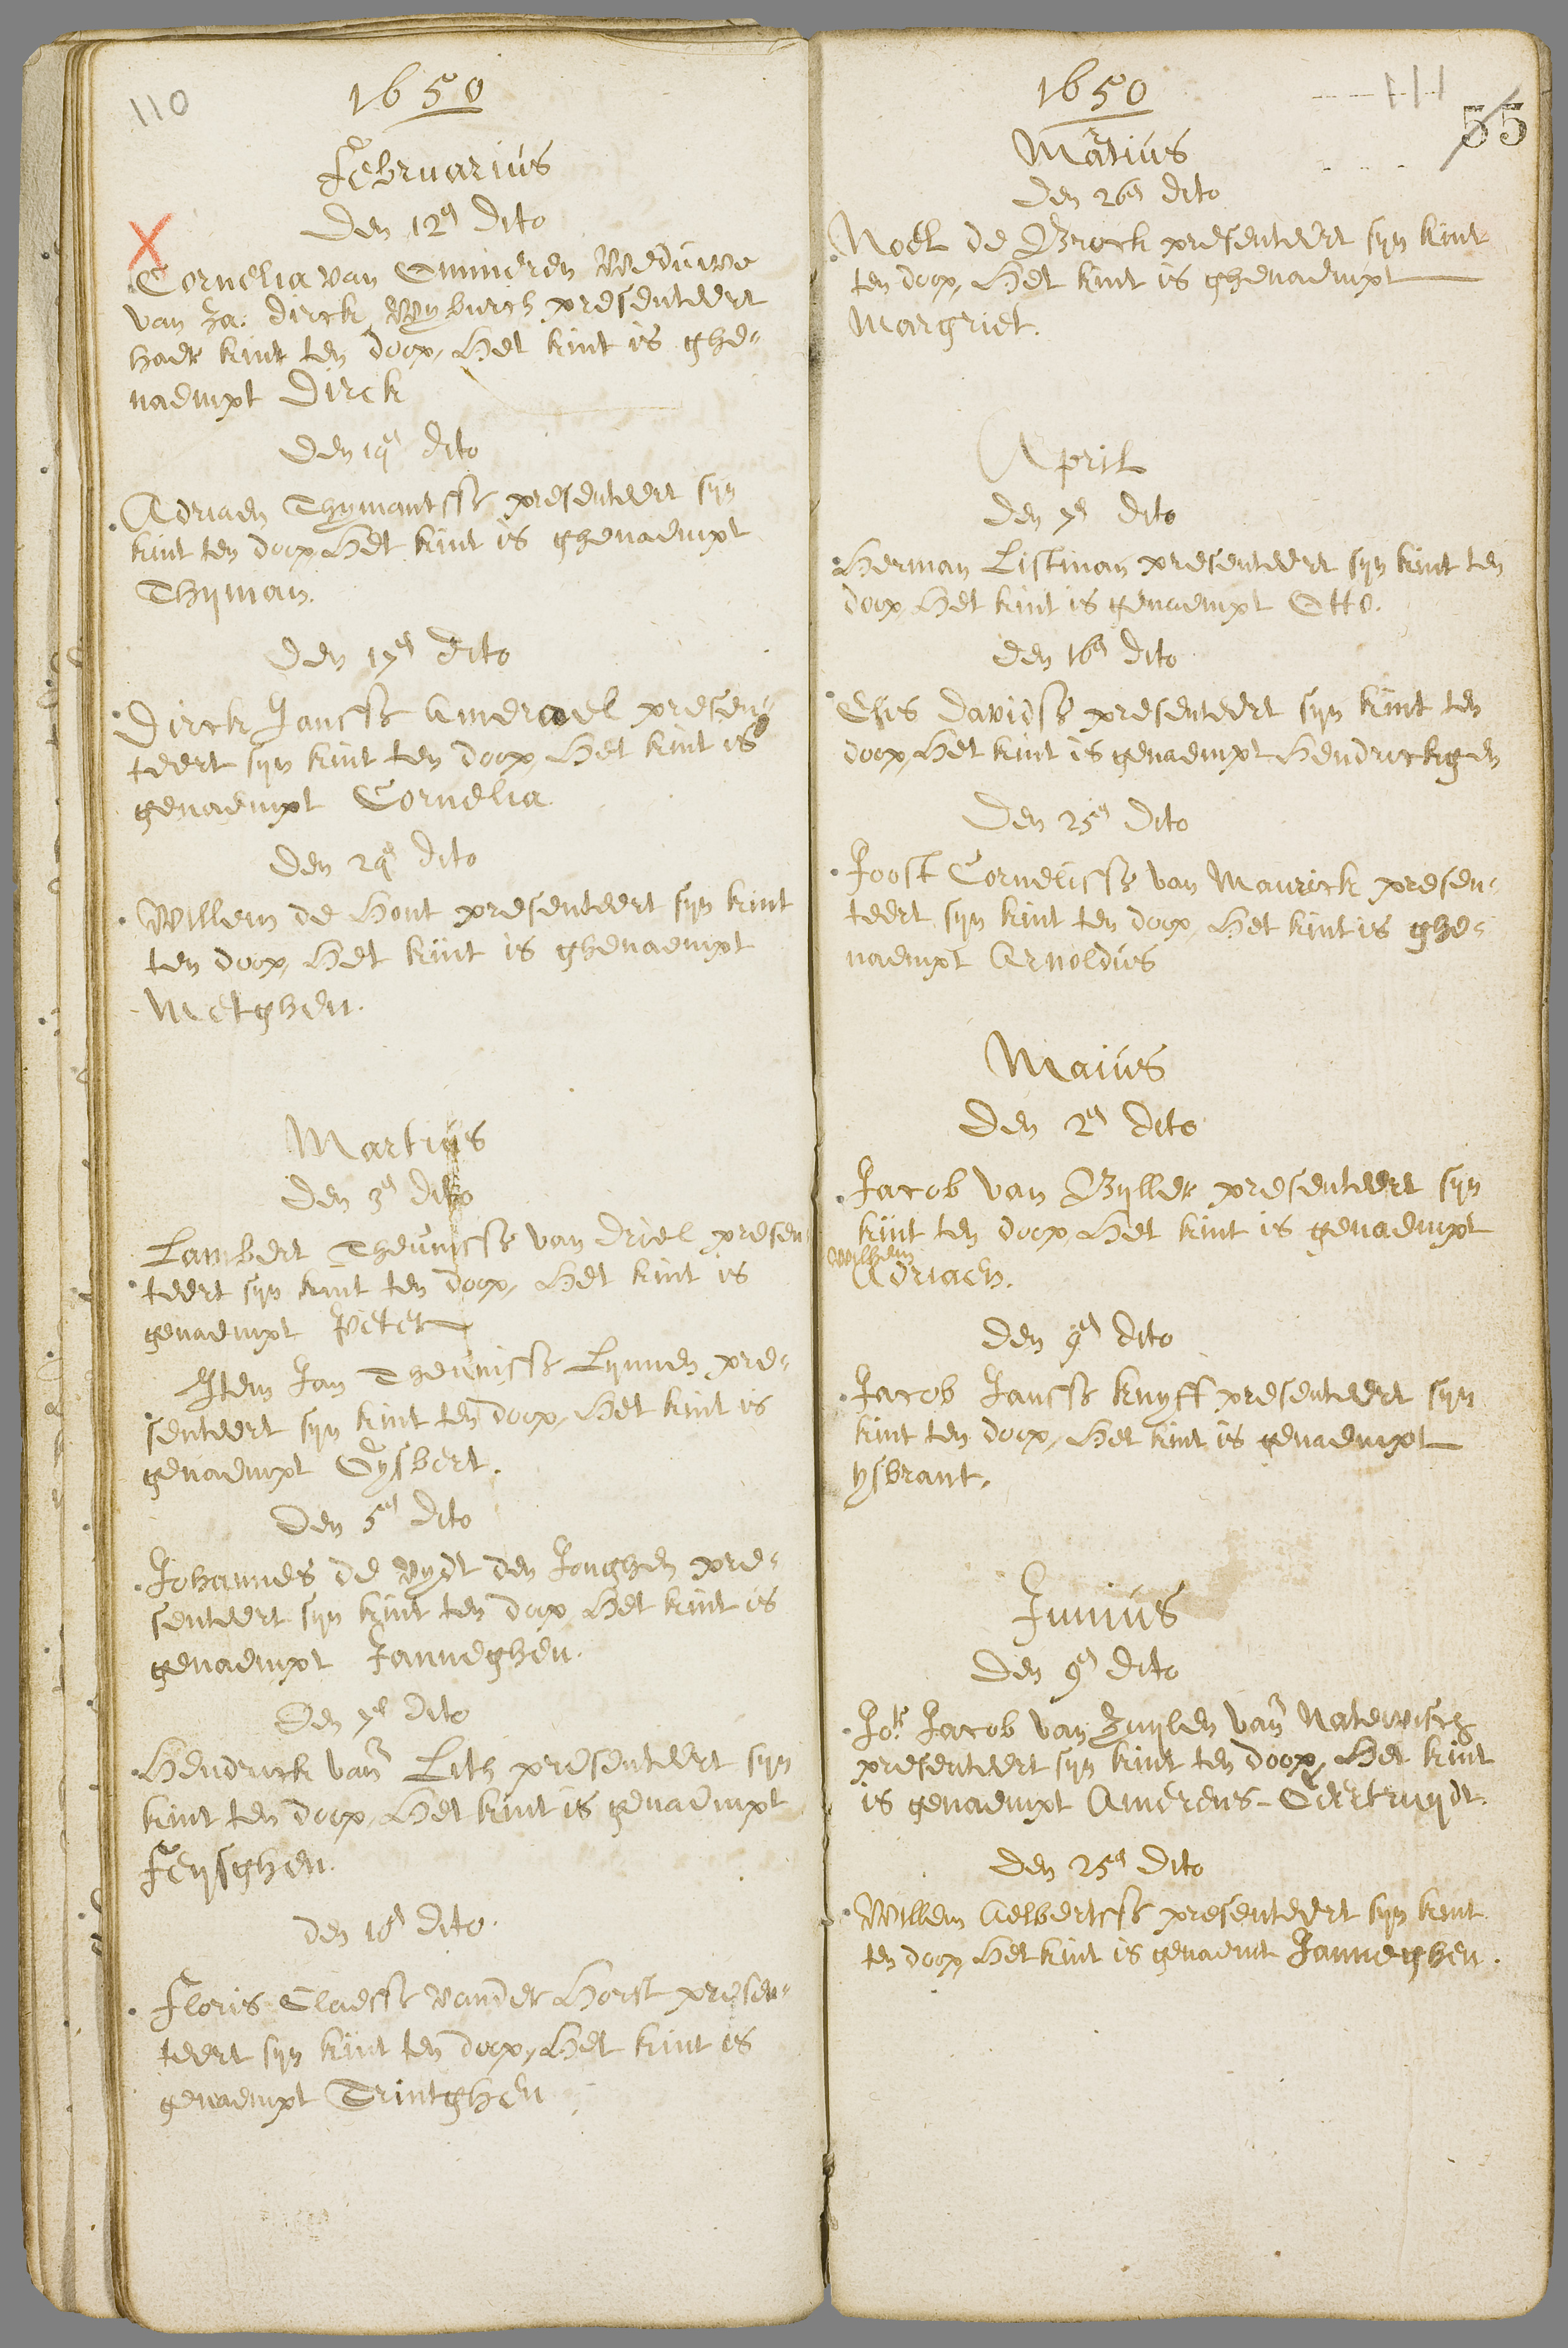 110
1650
Februarius
Den 12en dito
Cornelia van Ommeren Weduwe
van Za: Dirck Wyburch presenteert
haer kint ten doop, Het kint is ghe-
naempt Dirck
Den 14en dito
Adriaen Thymantsse presenteert syn
kint ten doop, Het kint is ghenaempt
Thyman.
Den 17en dito
Dirck Jansse Ameraael presen-
teert syn kint ten doop, Het kint is
genaempt Cornelia
Den 24en dito
Willem de Hont presenteert syn kint
ten doop, Het kint is ghenaempt
Metghen.
Martius
Den 3en dito
Lambert Theunisse van Driel presen
teert syn kint ten doop, Het kint is
genaempt Peter
Item Jan Theunisse Lynnen pre-
senteert syn kint ten doop, Het kint is
genaempt Gysbert.
Den 5en dito
Johannes de Rydt den Jonghen pre-
senteert syn kint ten doop, Het kint is
genaempt Janneghen.
Den 7en dito
Hendrick van Lith presenteert syn
kint ten doop, Het kint is genaempt
Feysghen.
den 10en dito.
Floris Claesse vander Horst presen-
teert syn kint ten doop, Het kint is
genaempt Trintghen
1650
111
55
Martius
Den 26en dito
Noël de Brock presenteert syn kint
ten doop, Het kint is ghenaempt
Margriet.
April
Den 7en dito
Herman Listman presenteert syn kint ten
doop, Het kint is genaempt Otto.
Den 16en dito
Elis Davidse presenteert syn kint ten
doop, Het kint is genaempt Hendrickgen
Den 25en dito
Joost Cornelisse van Maurick presen-
teert syn kint ten doop, Het kint is ghe-
naempt Arnoldus
Maius
Den 2en dito
Jacob van Byller presenteert syn
kint ten doop, Het kint is genaempt
Wilhem
Adriaen.
Den 9en dito
Jacob Jansse Knyff presenteert syn
kint ten doop, Het kint is genaempt
ysbrant.
Junius
Den 9en dito
Jor. Jacob van Zuylen van Natewisch
presenteert syn kint ten doop, Het kint
is genaempt Amerens-Geertruydt.
Den 25en dito
Willem Aelbertsse presenteert syn kint
ten doop, Het kint is genaemt Janneghen.